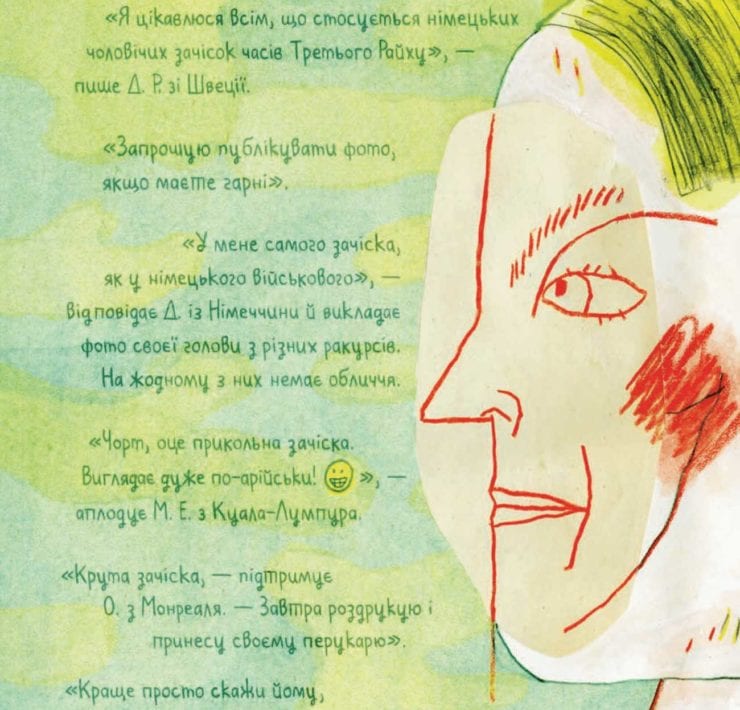 «Я цікавлюся всім, що стосується німецьких
чоловічих зачісок часів Третього Райху», —
пише Д. Р. зі Швеції.
«Запрошую публікувати фото,
якщо маєте гарні».
«У мене самого зачіска,
як у німецького військового», —
відповідає Д. із Німеччини й викладає
фото своєї голови з різних ракурсів.
На жодному з них немає обличчя.
«Чорт, оце прикольна зачіска.
Виглядає дуже по-арійськи! 😀», —
аплодує М. Е. з Куала-Лумпура.
«Крута зачіска, — підтримує
О. з Монреаля. — Завтра роздрукую і
принесу своєму перукарю».
«Краще просто скажи йому,